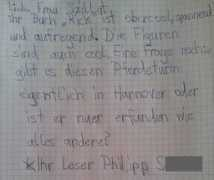 Liebe Frau
Ihr Buch „Rick" ist obercool, spannend
und aufregend. Die Figuren
sind auch cool. Eine Frage noch:
gibt es diesen Pferdeturm
eigentlich in Hannover oder
ist er nuer erfunden wie
alles andere?
*Ihr Leser Philipp S